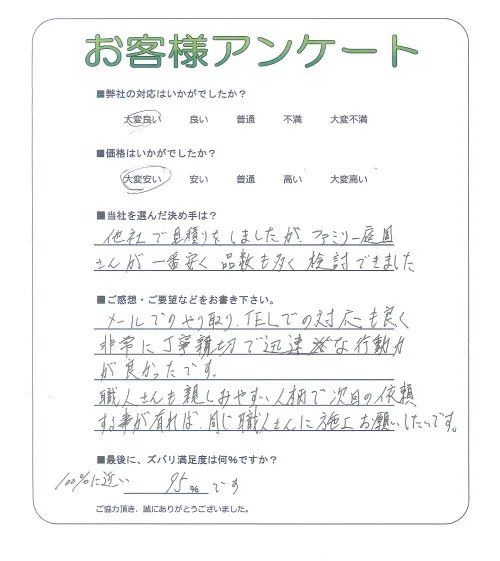 お客様アンケート
■弊社の対応はいかがでしたか？
大変良い 良い 普通 不満 大変不満
■価格はいかがでしたか？
大変安い 安い 普通 高い 大変高い
■当社を選んだ決め手は？
他社で見積りをしましたが、ファミリー庭園
さんが一番安く品数も多く検討できました
■ご感想・ご要望などをお書き下さい。
メールでのやり取り、TELでの対応も良く
非常に丁寧親切で迅速な行動力
が良かったです。
職人さんも親しみやすい人柄で次回の依頼
する事が有れば、同じ職人さんに施工お願いしたいです。
■最後に、ズバリ満足度は何％ですか？
100%に近い 95％です
ご協力頂き、誠にありがとうございました。